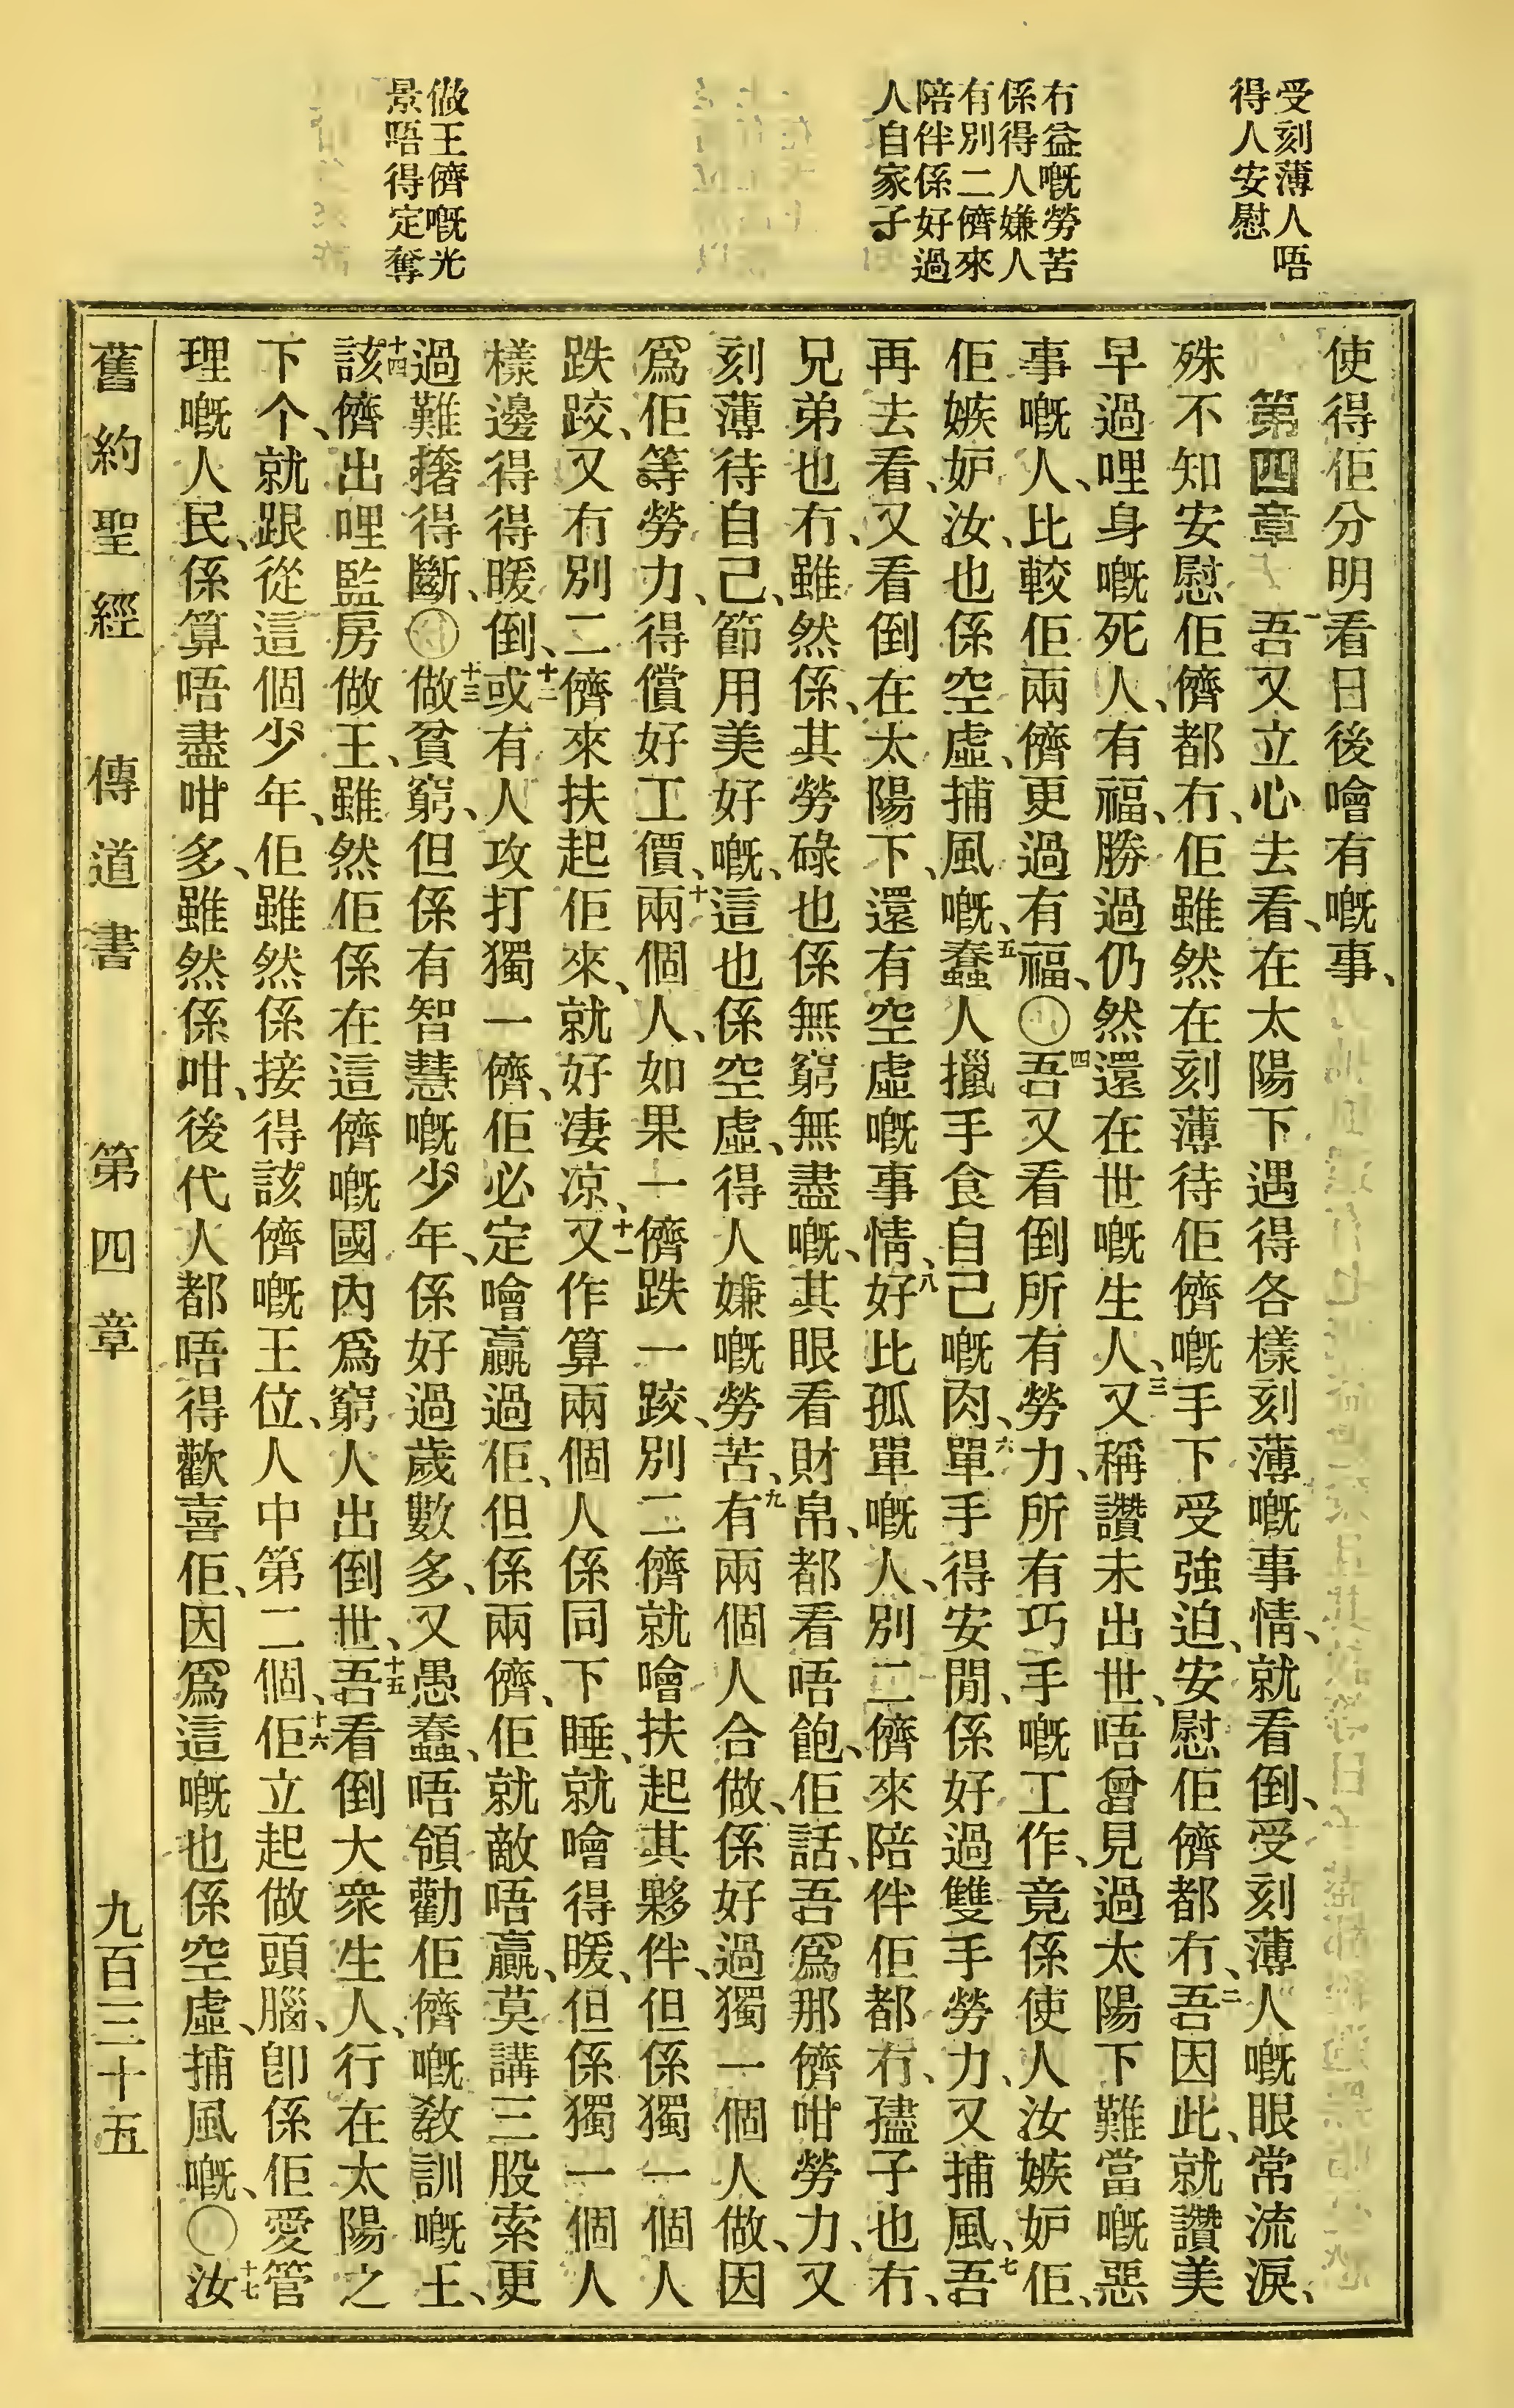 受刻薄人唔
得人安慰
冇益嘅勞苦
係得人嫌人
有別二儕來
陪伴係好過
人自家子
做王儕嘅光
景唔得定奪
使得佢分明看日後噲有嘅事、
第四章 一吾又立心去看、在太陽下遇得各樣刻薄嘅事情、就看倒、受刻薄人嘅眼常流淚、
殊不知安慰佢儕都冇、佢雖然在刻薄待佢儕嘅手下受強迫、安慰佢儕都冇、二吾因此、就讚美
早過哩身嘅死人、有福、勝過仍然還在世嘅生人、三又稱讚未出世、唔曾見過太陽下難當嘅惡
事嘅人、比較佢兩儕更過有福、〇四吾又看倒所有勞力、所有巧手嘅工作、竟係使人汝嫉妒佢、
佢嫉妒汝、也係空虛、捕風嘅、五蠢人擸手食自己嘅肉、六單手得安閒、係好過雙手勞力、又捕風、七吾
再去看、又看倒在太陽下、還有空虛嘅事情、八好比孤單嘅人、別二儕來陪伴佢都冇、孻子也冇、
兄弟也冇、雖然係、其勞碌也係無窮無盡嘅、其眼看財帛、都看唔飽、佢話、吾爲那儕咁勞力、又
刻薄待自己、節用美好嘅、這也係空虛、得人嫌嘅勞苦、九有兩個人合做、係好過獨一個人做、因
爲佢等勞力、得償好工價、十兩個人、如果一儕跌一跤、別二儕就噲扶起其夥伴、但係獨一個人
跌跤、又冇別二儕來扶起佢來、就好凄凉、十一又作算兩個人係同下睡、就噲得暖、但係獨一個人
樣邊得得暖倒、十二或有人攻打獨一儕、佢必定噲贏過佢、但係兩儕、佢就敵唔贏、莫講三股索更
過難撦得斷、〇十三做貧窮、但係有智慧嘅少年、係好過歲數多、又愚蠢、唔領勸佢儕嘅教訓嘅王、
十四該儕出哩監房做王、雖然佢係在這儕嘅國內爲窮人出倒世、十五吾看倒大衆生人、行在太陽之
下个、就跟從這個少年、佢雖然係接得該儕嘅王位、人中第二個、十六佢立起做頭腦、卽係佢愛管
理嘅人民、係算唔盡咁多、雖然係咁、後代人都唔得歡喜佢、因爲這嘅也係空虛、捕風嘅、〇十七汝
舊約聖經 傳道書 第四章 九百三十五